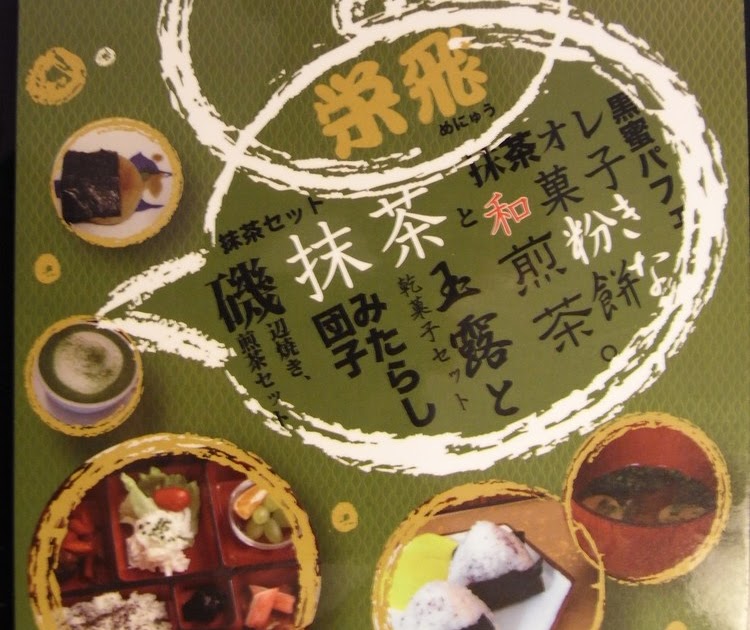 栄飛
めにゅう
黒蜜パフェ
抹茶オレ
と
和菓子
きな
粉餅。
煎茶
抹茶
玉露と
乾菓子セット
みたらし
団子
抹茶セット
磯辺焼き、
煎茶セット